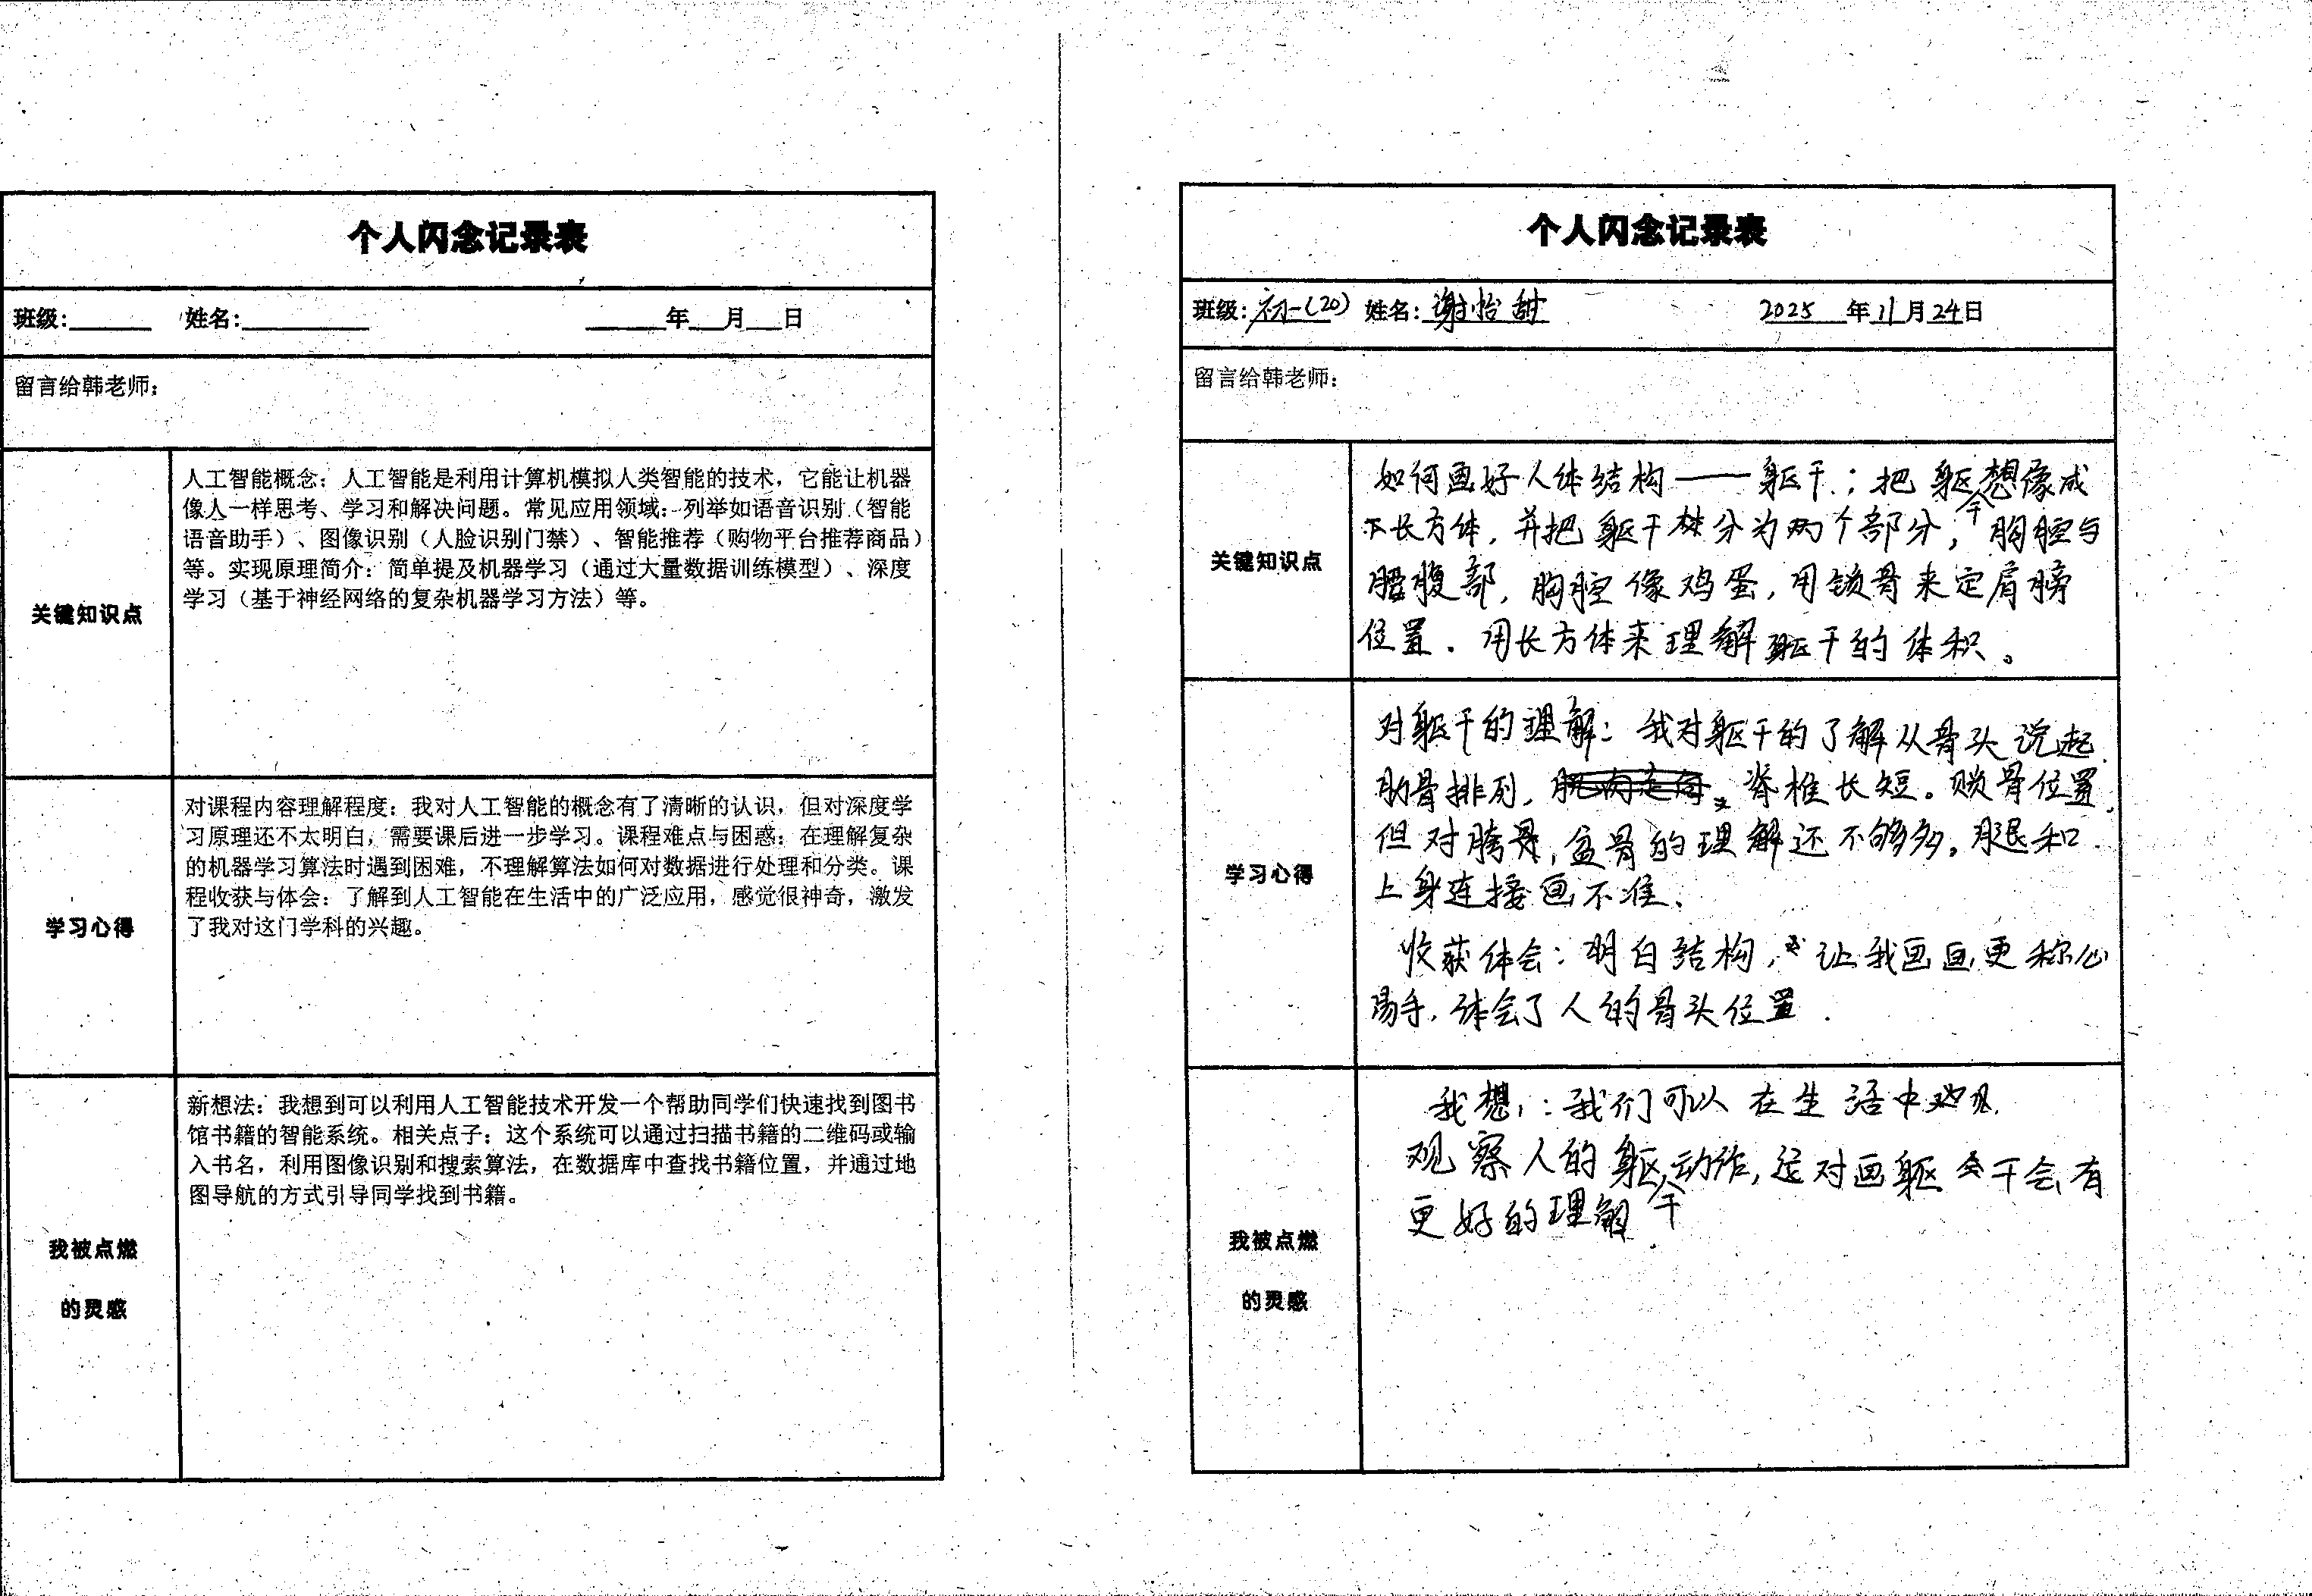 个人闪念记录表
班级:______ 姓名:______ ______年___月___日
留言给韩老师:
关键知识点
人工智能概念：人工智能是利用计算机模拟人类智能的技术，它能让机器
像人一样思考、学习和解决问题。常见应用领域：列举如语音识别（智能
语音助手）、图像识别（人脸识别门禁）、智能推荐（购物平台推荐商品）
等。实现原理简介：简单提及机器学习（通过大量数据训练模型）、深度
学习（基于神经网络的复杂机器学习方法）等。
学习心得
对课程内容理解程度：我对人工智能的概念有了清晰的认识，但对深度学
习原理还不太明白，需要课后进一步学习。课程难点与困惑：在理解复杂
的机器学习算法时遇到困难，不理解算法如何对数据进行处理和分类。课
程收获与体会：了解到人工智能在生活中的广泛应用，感觉很神奇，激发
了我对这门学科的兴趣。
我被点燃
的灵感
新想法：我想到可以利用人工智能技术开发一个帮助同学们快速找到图书
馆书籍的智能系统。相关点子：这个系统可以通过扫描书籍的二维码或输
入书名，利用图像识别和搜索算法，在数据库中查找书籍位置，并通过地
图导航的方式引导同学找到书籍。
个人闪念记录表
班级: 初一(20) 姓名: 谢怡甜 2025 年 11 月 24 日
留言给韩老师:
关键知识点
如何画好人体结构——躯干；把躯干想像成
长方体，并把躯干分为两个部分，胸腔与
腰腹部，胸腔像鸡蛋，用锁骨来定肩膀
位置．用长方体来理解躯干的体积。
学习心得
对躯干的理解：我对躯干的了解从骨头说起．
肋骨排列，脊椎长短。锁骨位置．
但对胯骨，盆骨的理解还不够多，腿和
上身连接画不准、
收获体会：明白结构，让我画画更称心
手，体会了人的骨头位置．
我被点燃
的灵感
我想：我们可以在生活中
观察人的躯干动作，对画躯干会有
更好的理解．